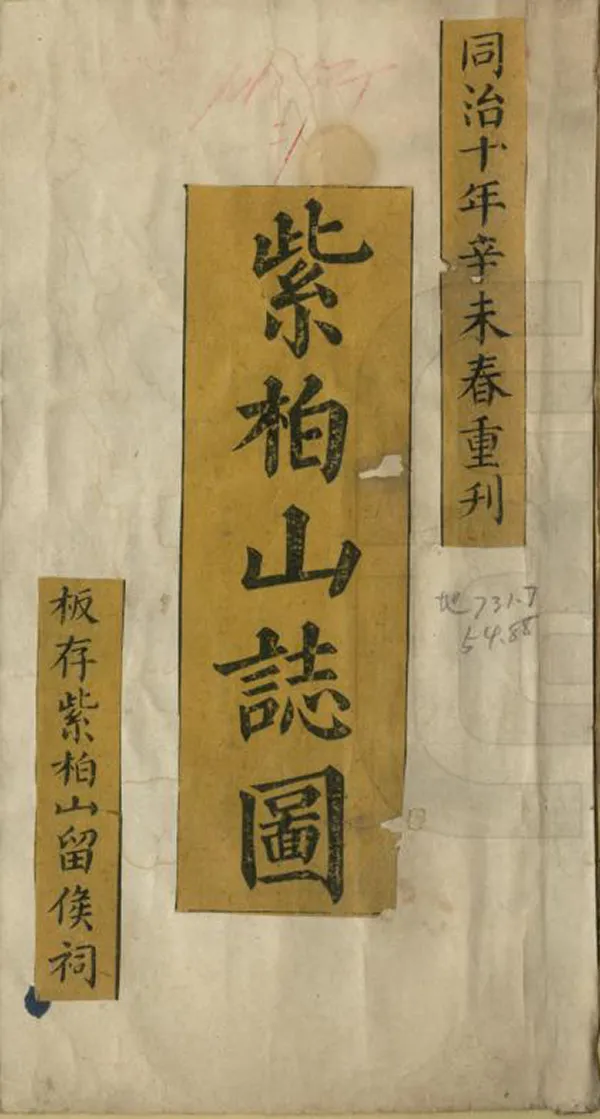 同治十年辛未春重刊
紫柏山誌圖
板存紫柏山留侯祠
地731.7
54.88